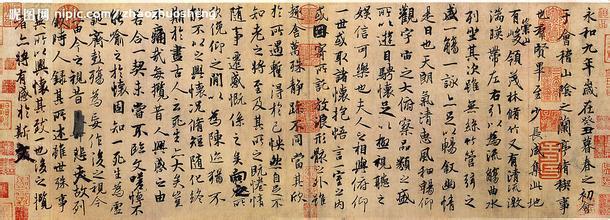 永和九年歲在癸丑暮春之初會
于會稽山陰之蘭亭脩稧事
也羣賢畢至少長咸集此地
有崇山峻領茂林脩竹又有清流激
湍暎帶左右引以為流觴曲水
列坐其次雖無絲竹管弦之
盛一觴一詠亦足以暢叙幽情
是日也天朗氣清惠風和暢仰
觀宇宙之大俯察品類之盛
所以遊目騁懷足以極視聽之
娛信可樂也夫人之相與俯仰
一世或取諸懷抱悟言一室之內
或因寄所託放浪形骸之外雖
趣舍萬殊靜躁不同當其欣
於所遇蹔得於己怏然自足不
知老之將至及其所之既惓情
隨事遷感慨係之矣向之所
欣俛仰之間以為陳迹猶不
能不以之興懷況脩短隨化終
期於盡古人云死生亦大矣豈
不痛哉每攬昔人興感之由
若合一契未嘗不臨文嗟悼不
能喻之於懷固知一死生為虛
誕齊彭殤為妄作後之視今
亦由今之視昔悲夫故列
叙時人錄其所述雖世殊事
異所以興懷其致一也後之攬
者亦將有感於斯文
nipic.com/zhaozhuosheng